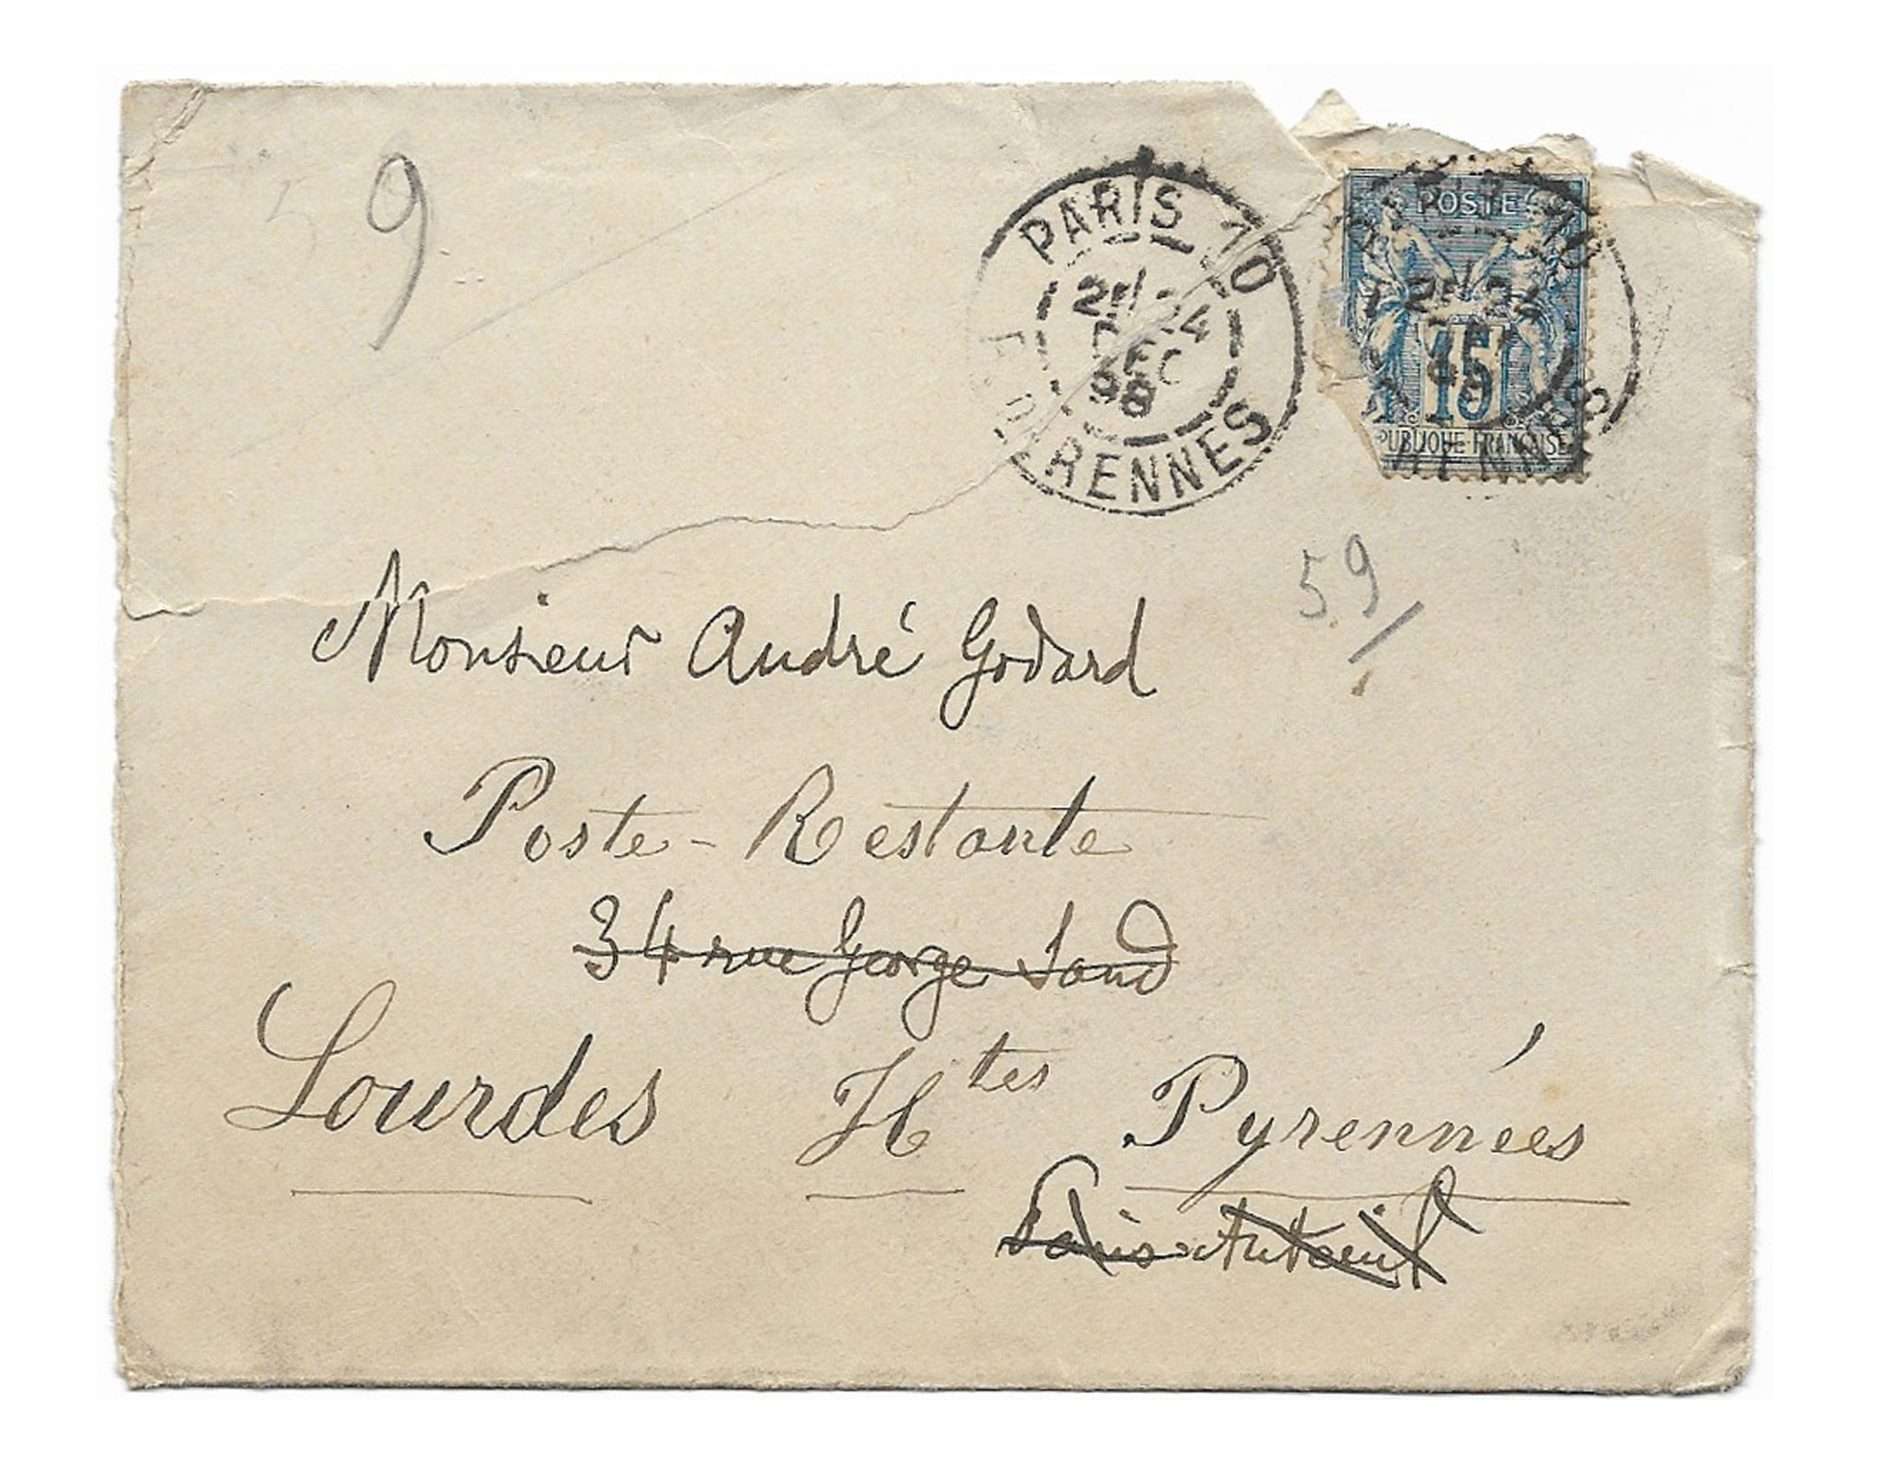 59
PARIS 10
2E/24
DEC
98
R. DE RENNES
POSTE
15
PUBLIQUE FRANÇAISE
59/
Monsieur André Godard
Poste-Restante
34 rue George Sand
Lourdes Htes Pyrennées
Paris Auteuil